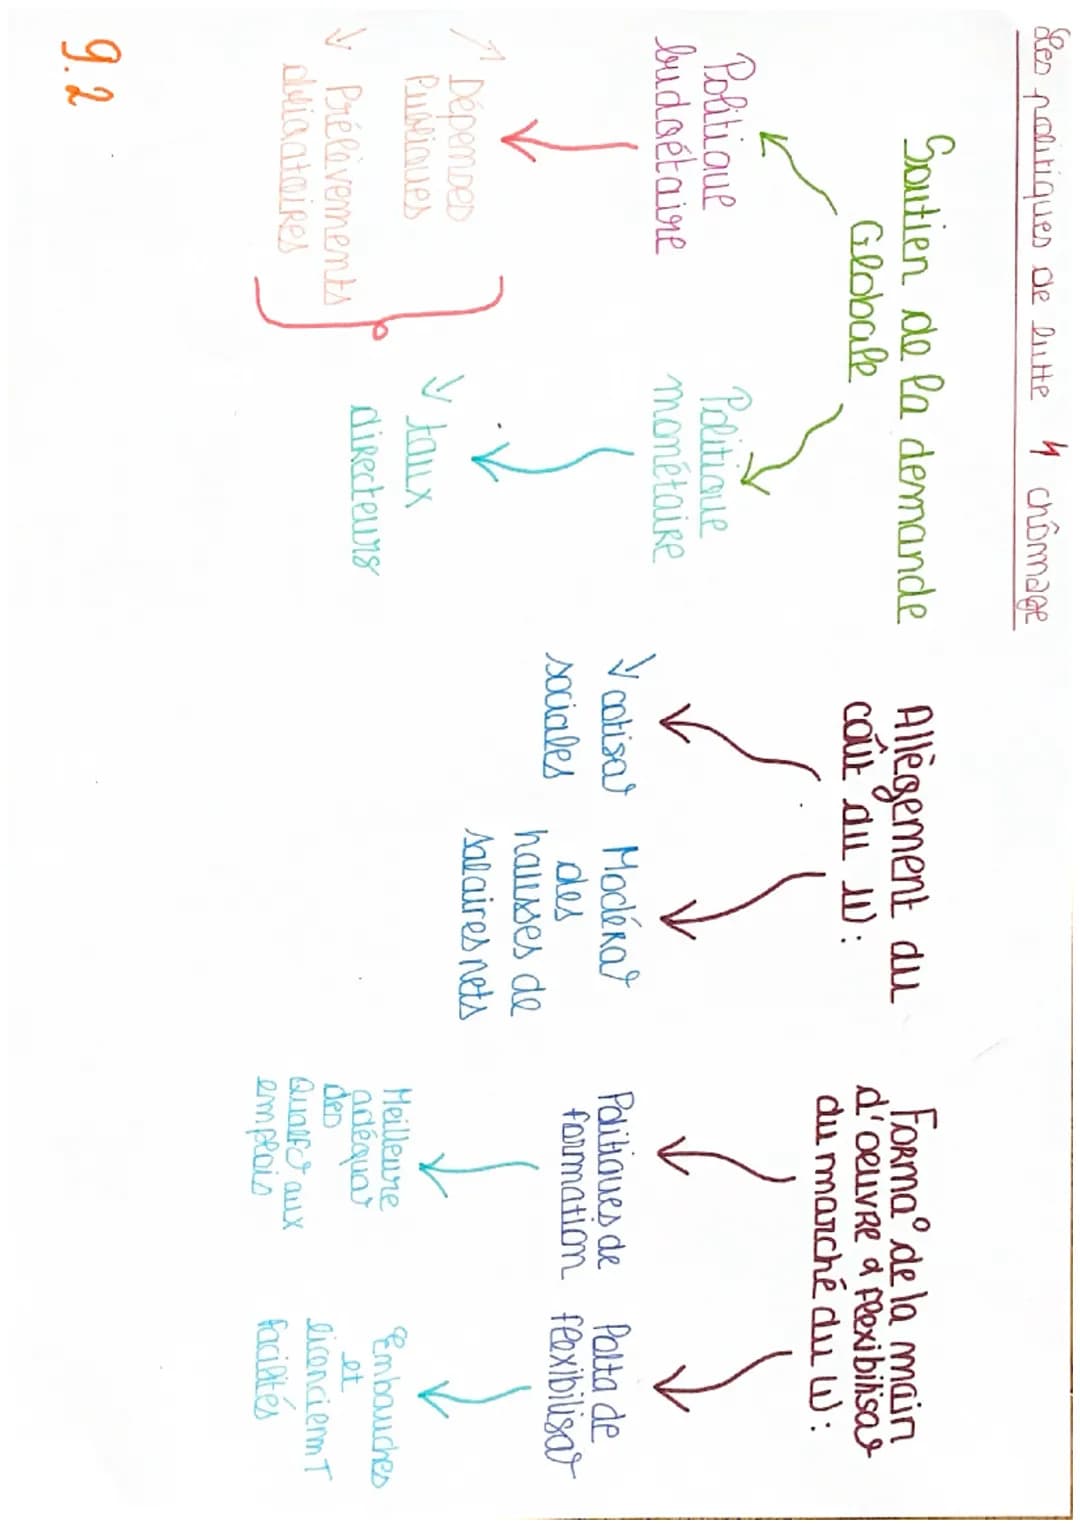 Les politiques de lutte chômage
Soutien de la demande
Globale
Politique
budgétaire
↗ Dépenses
Publiques
↓ Prélèvements
obligatoires
Politique
monétaire
↓ taux
directeurs
Allègement du
coût du W :
↓ cotisa°
sociales
Modéra°
des
hausses de
salaires nets
Forma° de la main
d'oeuvre & flexibilisa°
du marché du W :
Politiques de
formation
Meilleure
adéqua°
des
Qualif° aux
emplois
Polta de
flexibilisa°
Embauches
et
licenciemmT
facilités
9.2